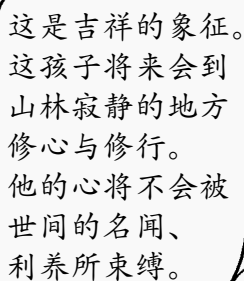 这是吉祥的象征。
这孩子将来会到
山林寂静的地方
修心与修行。
他的心将不会被
世间的名闻、
利养所束缚。